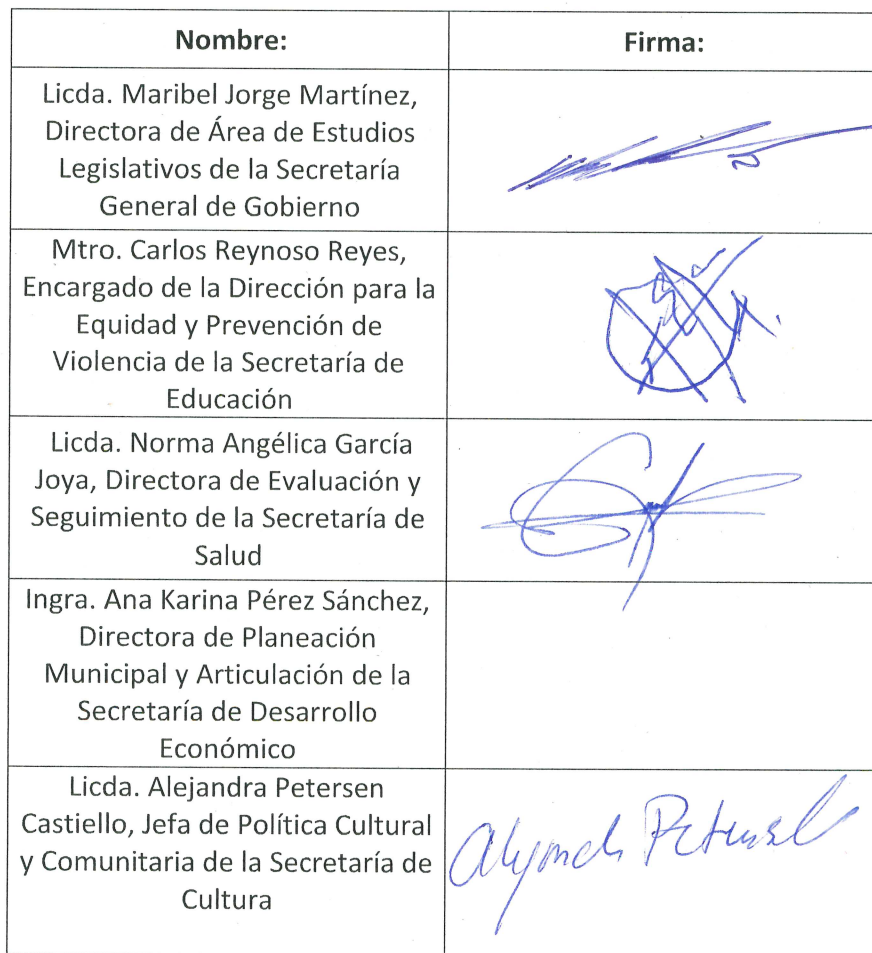 Nombre:
Firma:
Licda. Maribel Jorge Martínez,
Directora de Área de Estudios
Legislativos de la Secretaría
General de Gobierno
Mtro. Carlos Reynoso Reyes,
Encargado de la Dirección para la
Equidad y Prevención de
Violencia de la Secretaría de
Educación
Licda. Norma Angélica García
Joya, Directora de Evaluación y
Seguimiento de la Secretaría de
Salud
Ingra. Ana Karina Pérez Sánchez,
Directora de Planeación
Municipal y Articulación de la
Secretaría de Desarrollo
Económico
Licda. Alejandra Petersen
Castiello, Jefa de Política Cultural
y Comunitaria de la Secretaría de
Cultura